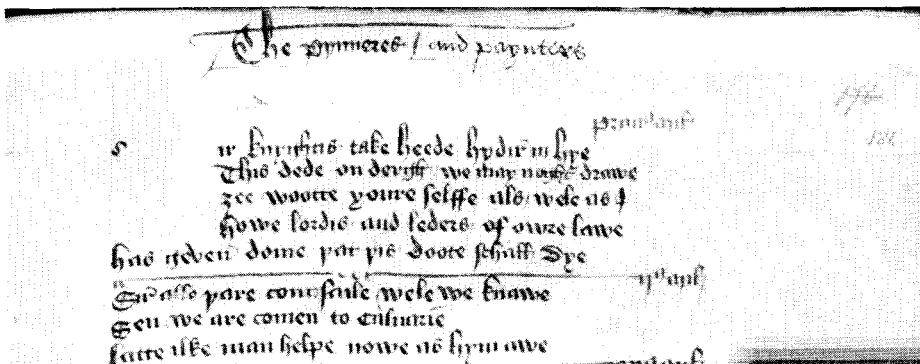 The pynneres / and payntors
primus miles
s ir knyghtis take heede hydir in hye
This dede on dergh we may noght drawe
ȝee wootte youre selffe als wele as I
Howe lordis and leders of owre lawe
has geven dome þat þis doote schall dye
ijus miles
Sir alle þare counsaile wele we knawe
Sen we are comen to caluarie
latte ilke man helpe nowe as hym awe